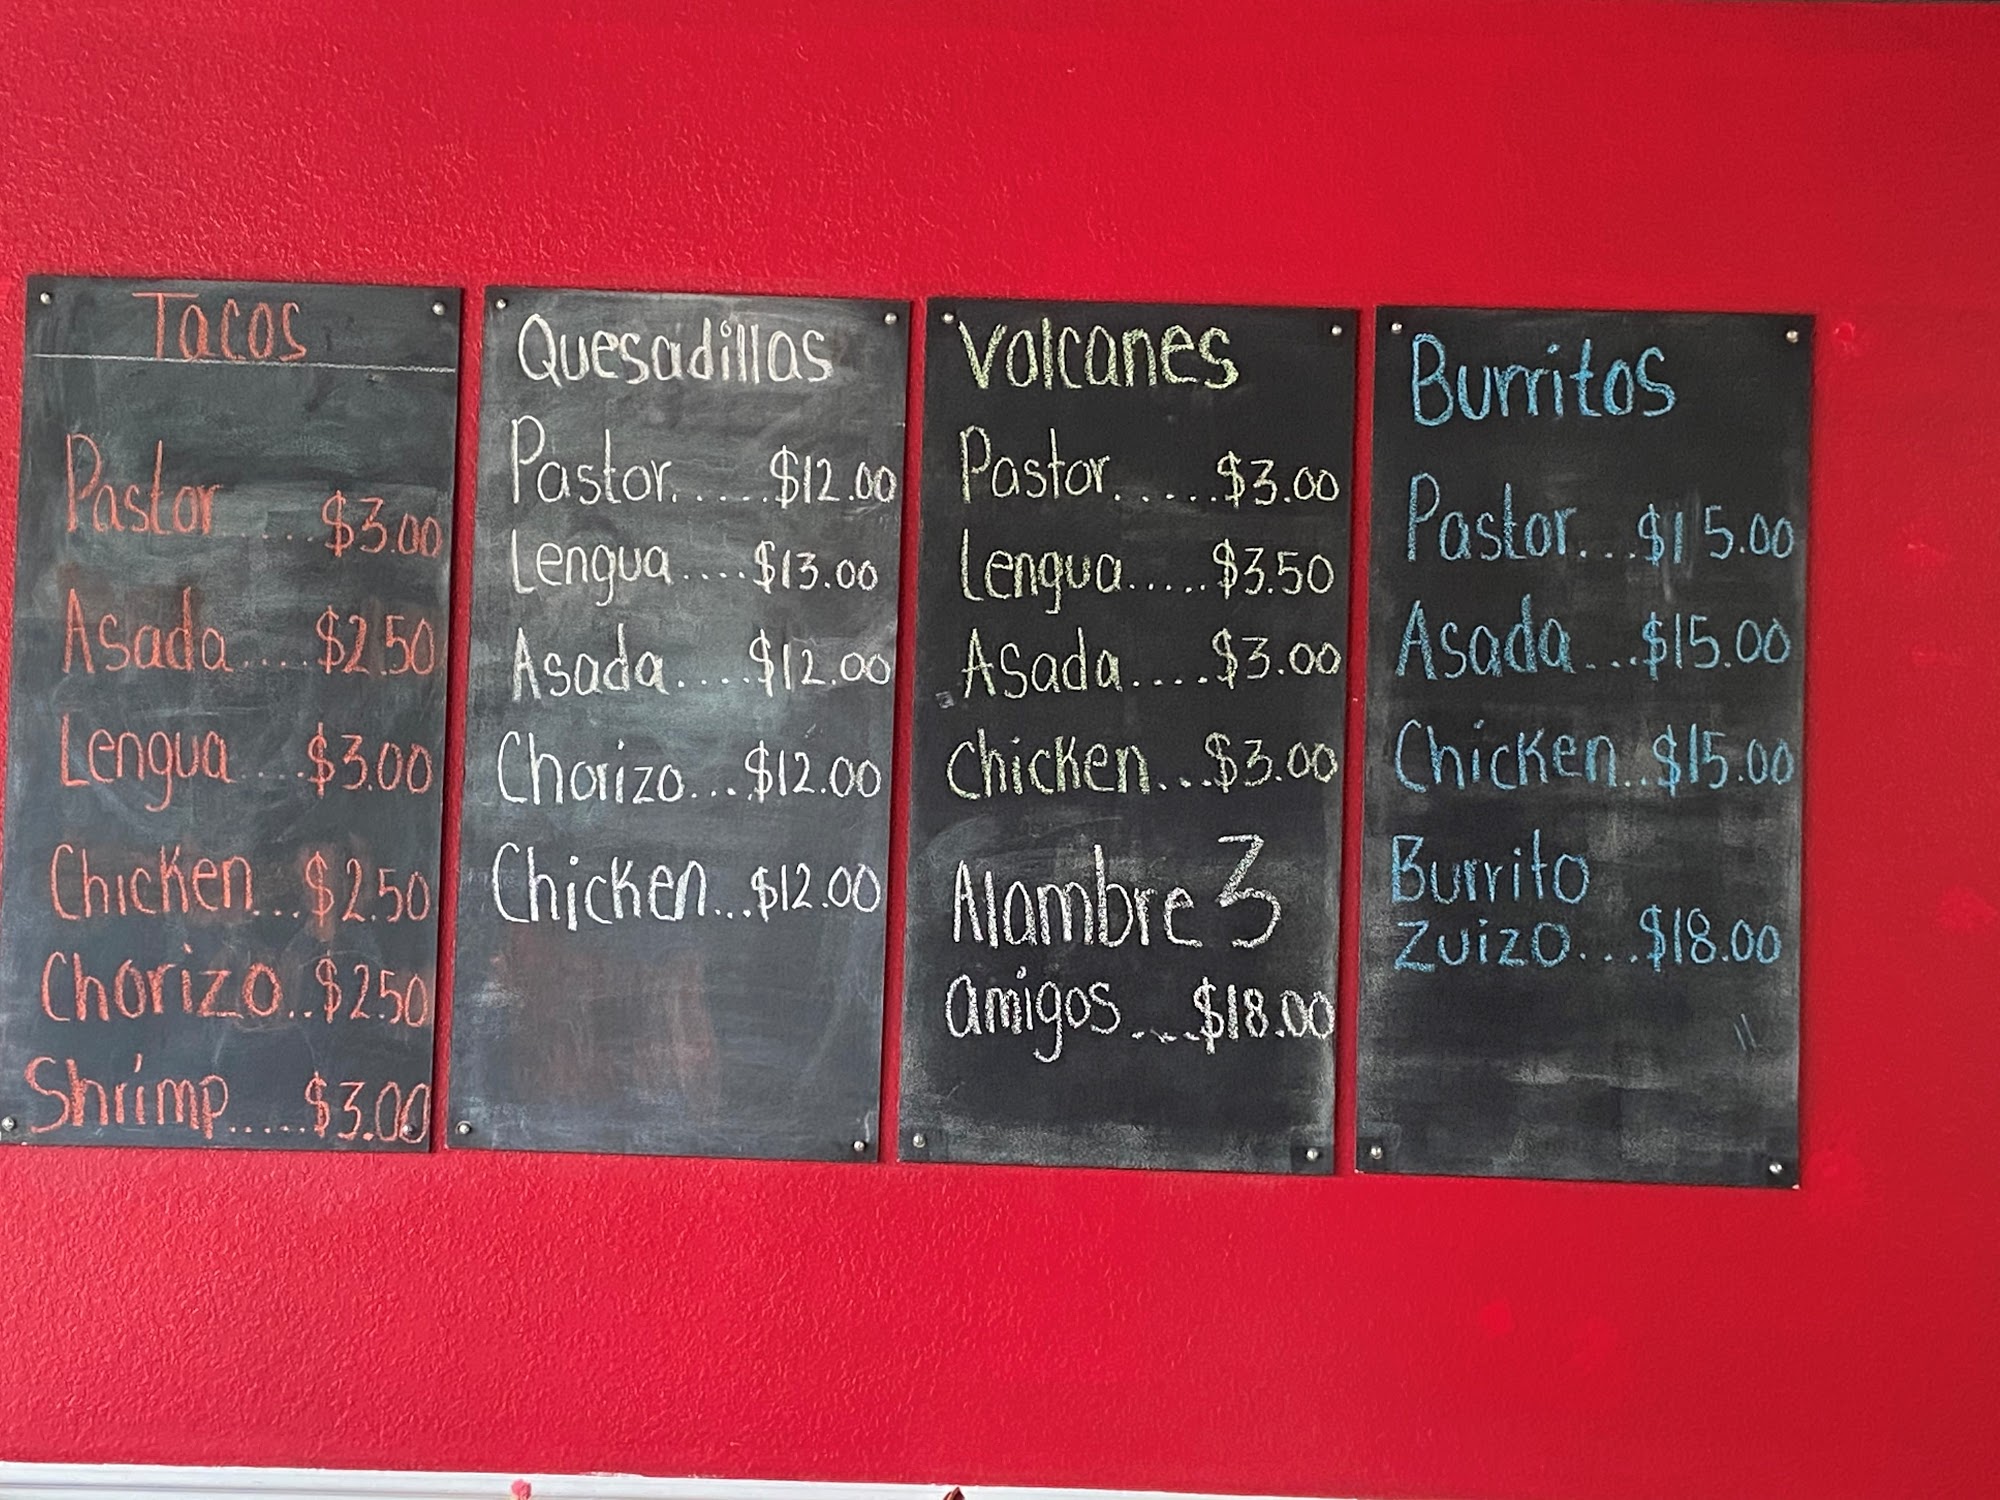 Tacos
Pastor.....$3.00
Asada....$2.50
Lengua....$3.00
Chicken...$2.50
Chorizo..$2.50
Shrimp.....$3.00
Quesadillas
Pastor......$12.00
Lengua....$13.00
Asada....$12.00
Chorizo....$12.00
Chicken...$12.00
Volcanes
Pastor.....$3.00
Lengua.....$3.50
Asada....$3.00
Chicken...$3.00
Alambre 3
amigos....$18.00
Burritos
Pastor...$15.00
Asada...$15.00
Chicken..$15.00
Burrito
Zuizo...$18.00